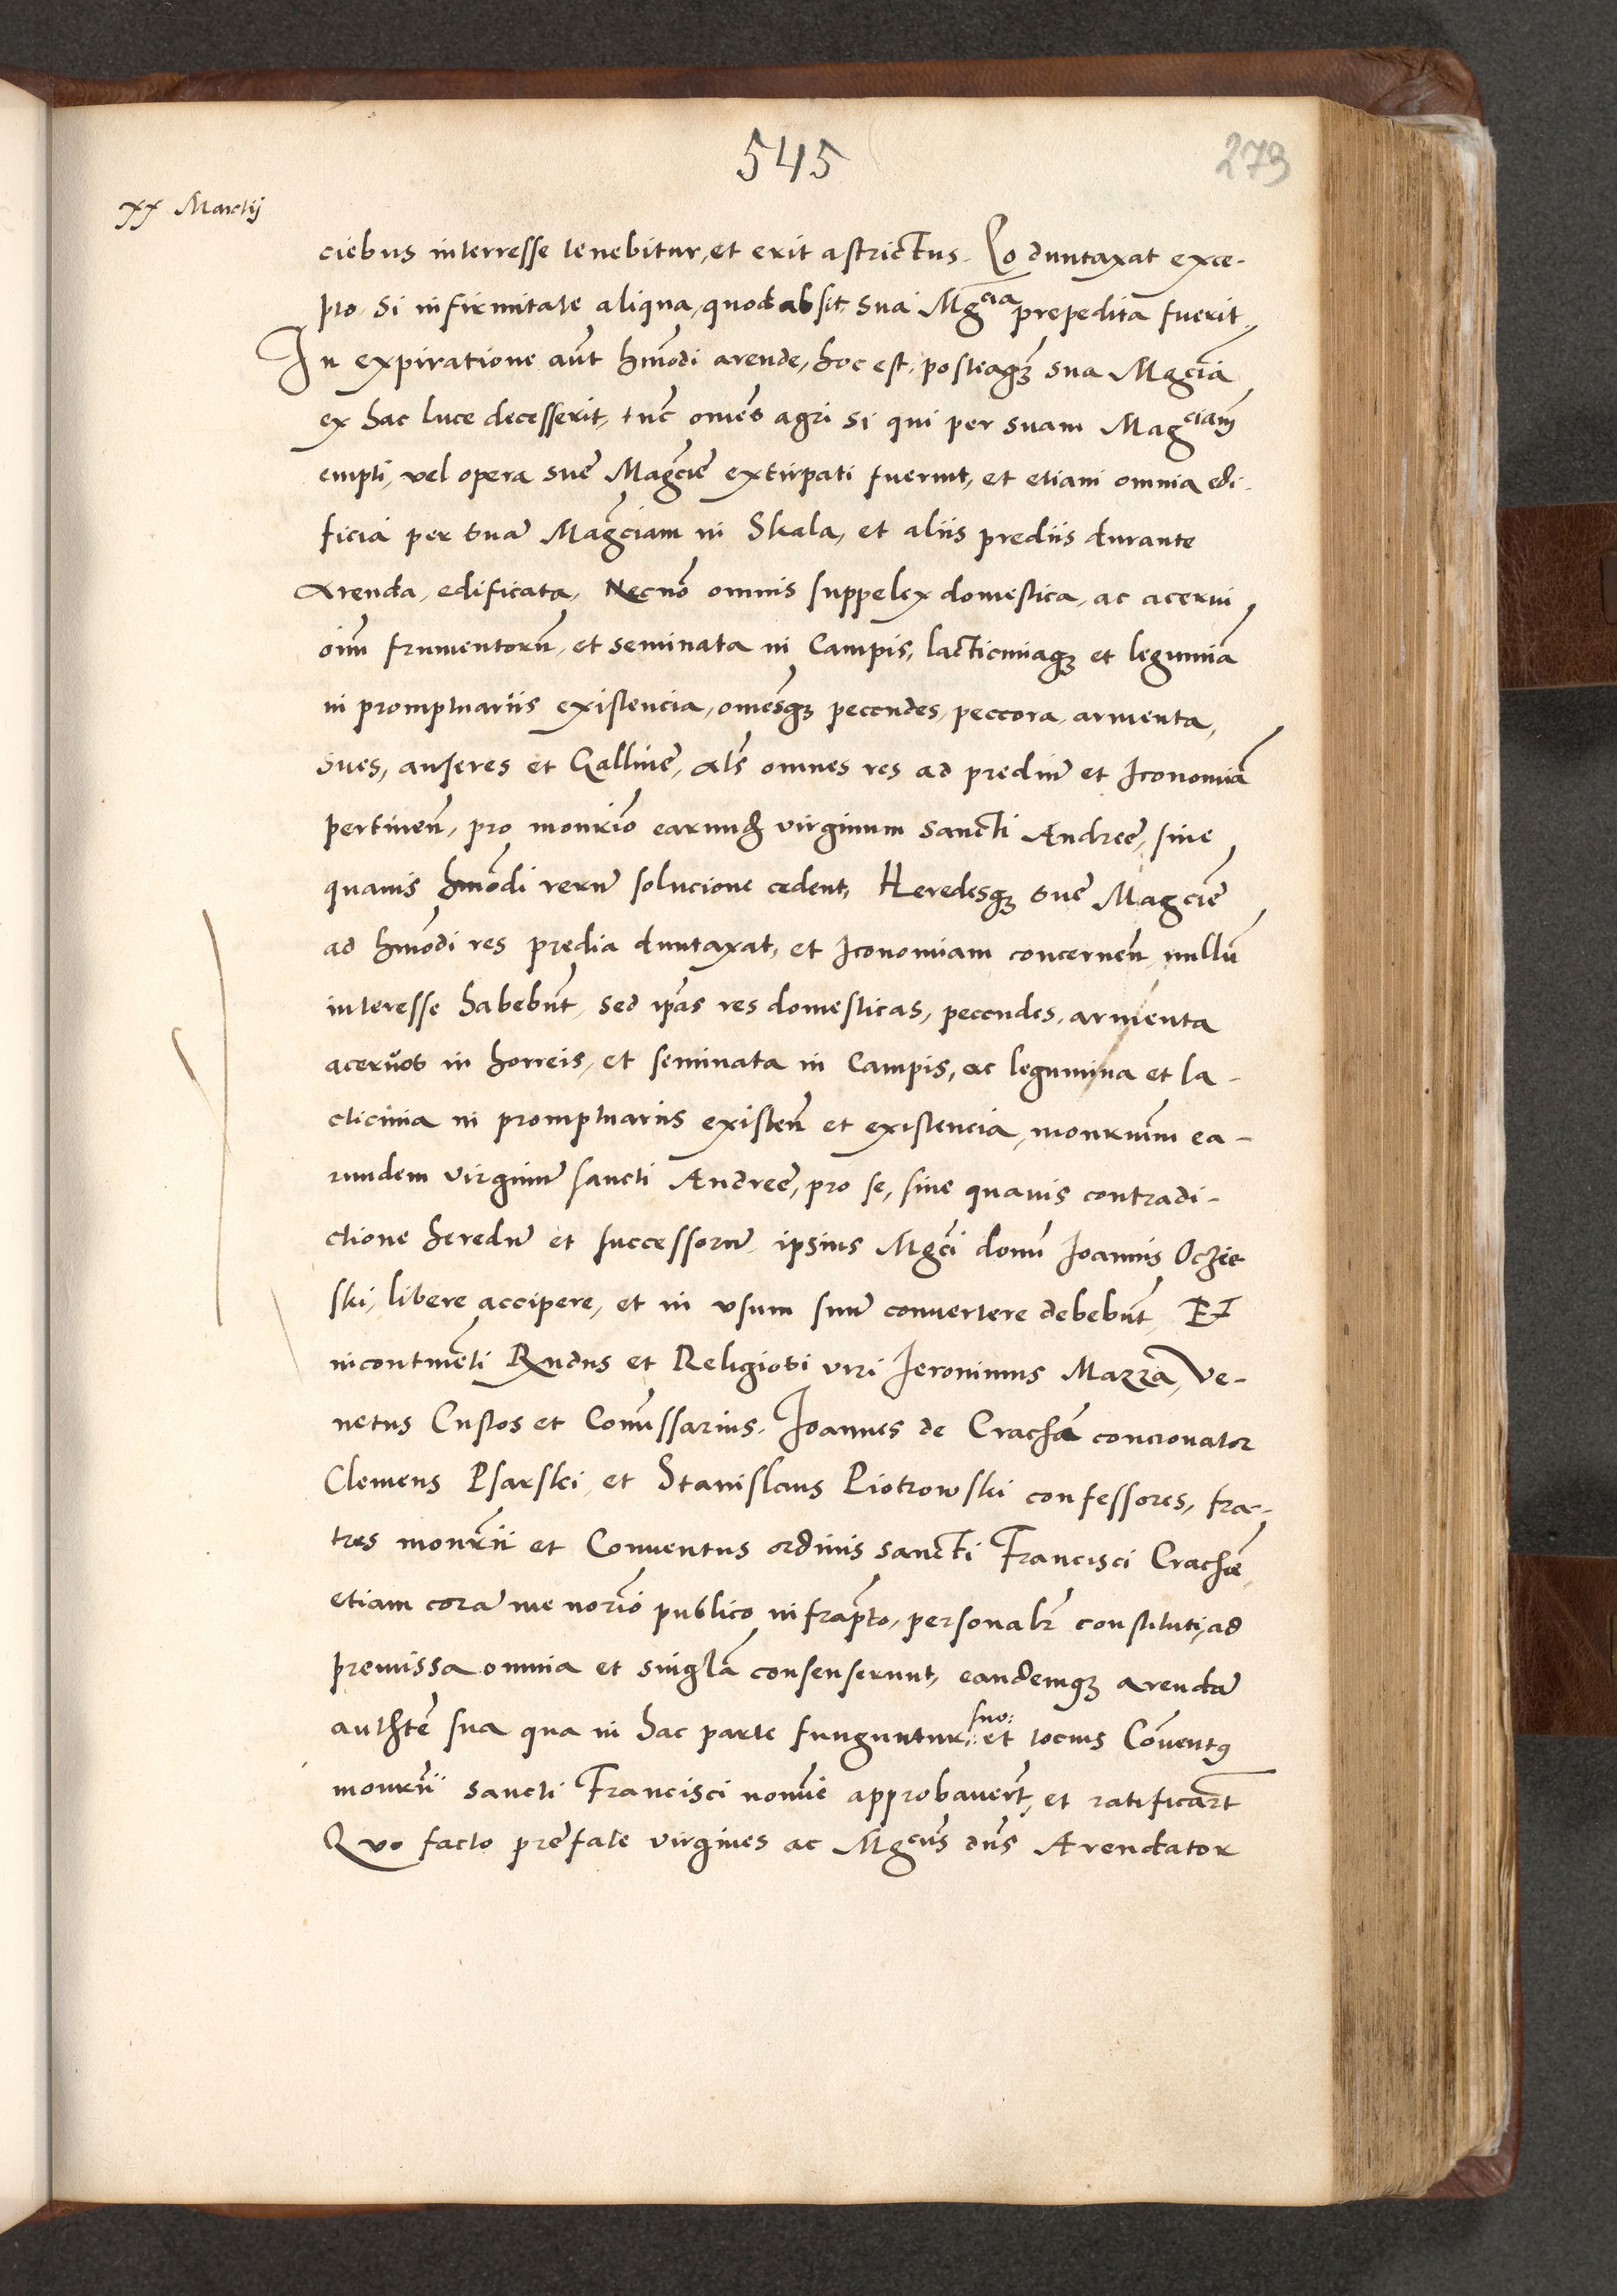 545
279
xx Martij
ciebus interresse tenebitur, et erit astrictus. Eo duntaxat exce-
pto, si infirmitate aliqua, quod absit, sua Mgcia prepedita fuerit,
In expiratione aut hmōdi arende, hoc est, posteaq̃ sua Magcia
ex hac luce decesserit, tūc omēs agri si qui per suam Magciam
empti, vel opera sue Magcie extirpati fuerint, et etiam omnia edi-
ficia per suā Magciam in Skala, et aliis prediis durante
Arenda, edificata, Necnō omnis suppelex domestica, ac acerui
oīm frumentorū, et seminata in Campis, lacticiniaq; et legumīa
in promptuariis existencia, omēsq; peccudes, peccora, armenta,
sues, anseres et Galline, als omnes res ad prediū et Iconomiā
pertinen̄, pro monrio earund virginum sancti Andree, sine
quauis hmōdi rerū solucione cedent, Heredesq; sue Magcie
ad hmōdi res predia duntaxat, et Iconomiam concernen̄ nullū
interesse habebūt, sed ip̄as res domesticas, peccudes, armenta
aceruos in horreis, et seminata in Campis, ac legumina et la-
cticinia in promptuariis existen̄ et existencia, monrium ea-
rundem virginū sancti Andree, pro se, sine quauis contradi-
ctione heredū et successorū ipsius Mgci domī Ioannis Oczie
ski, libere accipere, et in vsum suū conuertere debebūt, Et
incontinēti Rndus et Religiosi viri Ieronimus Mazza, Ve-
netus Custos et Comissarius, Ioannes de Crachā concionator
Clemens Psarski, et Stanislaus Piotrowski confessores, fra-
tres monrii et Conuentus ordinis sancti Francisci Crachē
etiam corā me norio publico infrapto, personalr constituti, ad
premissa omnia et singlā consenserunt, eandemq; arendā
authtē sua qua in hac parte funguntur, suo: et tocius Cōuentq
monrii sancti Francisci nomīe approbauert, et ratificart
Quo facto prefate virgines ac Mgcus dns Arendator